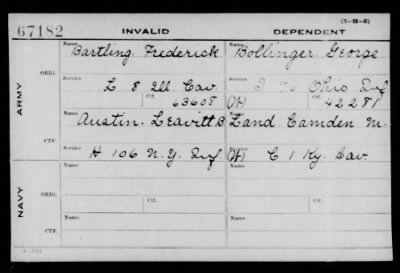 (3-II-5)
67182 INVALID DEPENDENT
Name Name
Bartling Frederick Bollinger George
ORIG.
Service Service
L 8 Ill Cav. Ohio Inf
Ctf. Ctf.
63608 (W) 42281
ARMY
Name Name
Austin Leavitt B Land Camden M.
CTF.
Service Service
H 106 N.Y. Inf. (W) C 1 Ky. Cav.
NAVY
Name Name
ORIG.
Service Service
Ctf. Ctf.
Name Name
CTF.